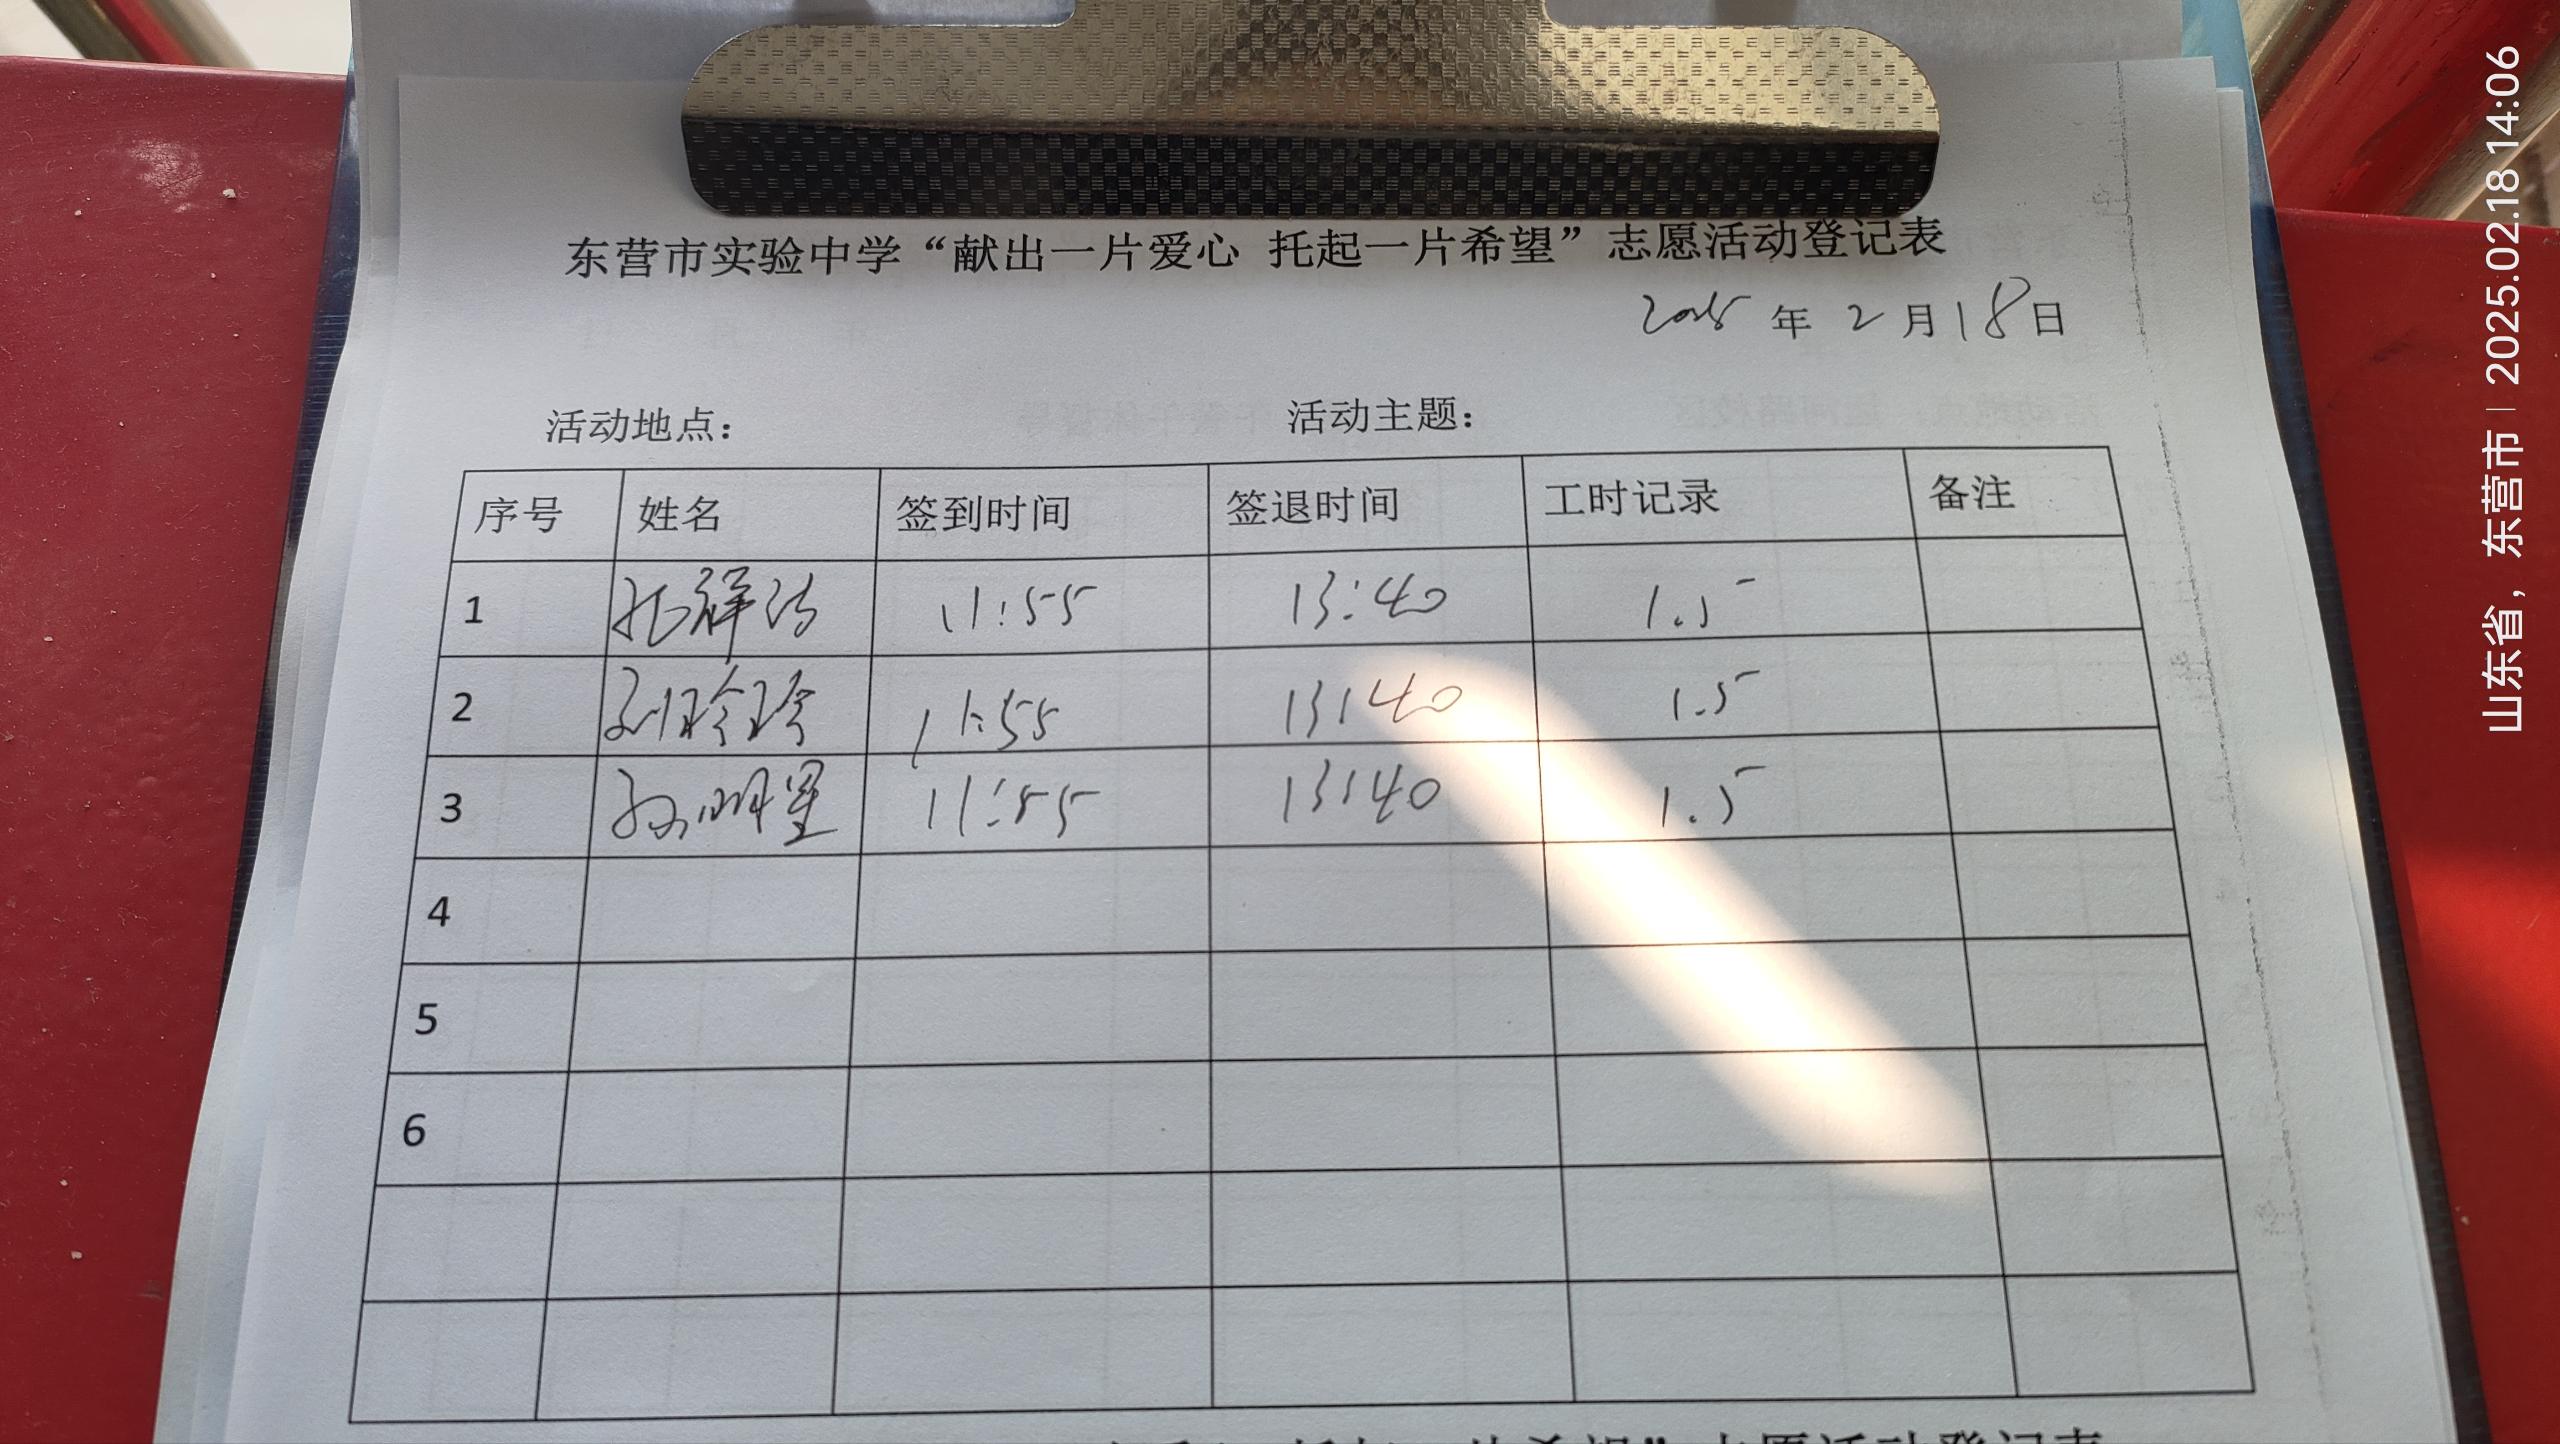 东营市实验中学“献出一片爱心 托起一片希望”志愿活动登记表
2025年2月18日
活动地点： 活动主题：
序号 姓名 签到时间 签退时间 工时记录 备注
1 祥 11:55 13:40 1.5
2 刘玲玲 11:55 13:40 1.5
3 孙明星 11:55 13:40 1.5
4
5
6
山东省，东营市 | 2025.02.18 14:06